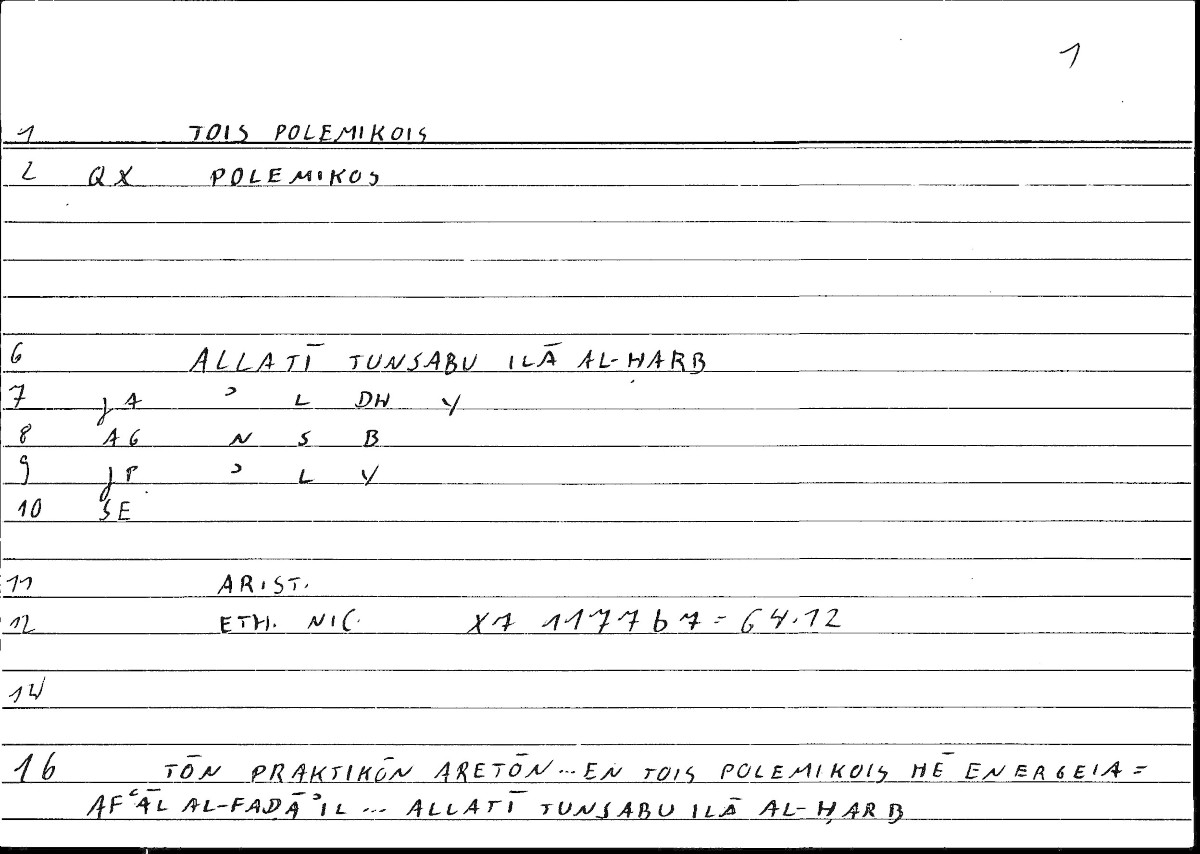 1
1 TOIS POLEMIKOIS
2 QX POLEMIKOS
6 ALLATĪ TUNSABU ILĀ AL-ḤARB
7 JA ʾ L DH Y
8 AG N S B
9 JP ʾ L Y
10 SE
11 ARIST.
12 ETH. NIC. X7 1177b7=64.12
14
16 TŌN PRAKTIKŌN ARETŌN...EN TOIS POLEMIKOIS HĒ ENERGEIA =
AFʿĀL AL-FAḌĀʾIL ... ALLATĪ TUNSABU ILĀ AL-ḤARB